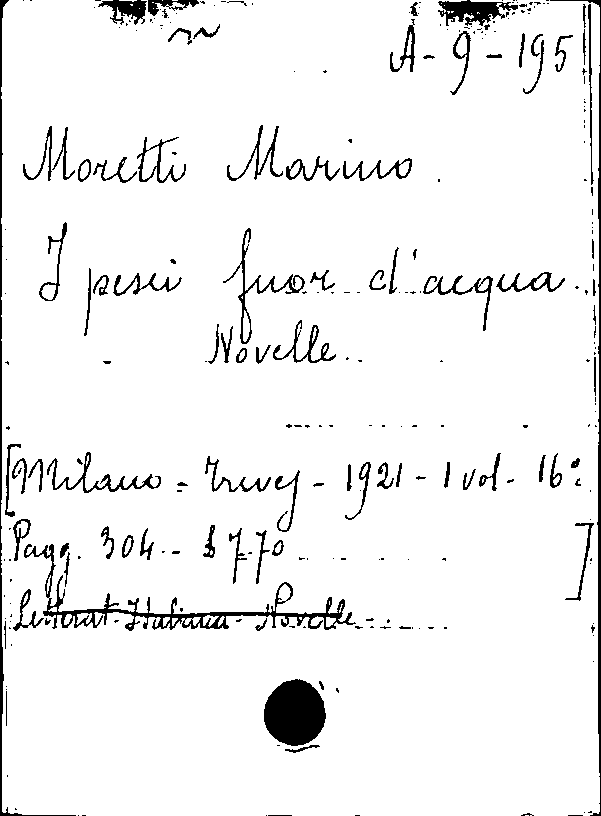 A-9-195
Moretti Marino
I pesci fuor d'acqua.
Novelle.
[Milano - Treves - 1921 - 1 vol. 16°.
Pagg. 304 - £ 7.70 ]
Letterat. Italiana - Novelle